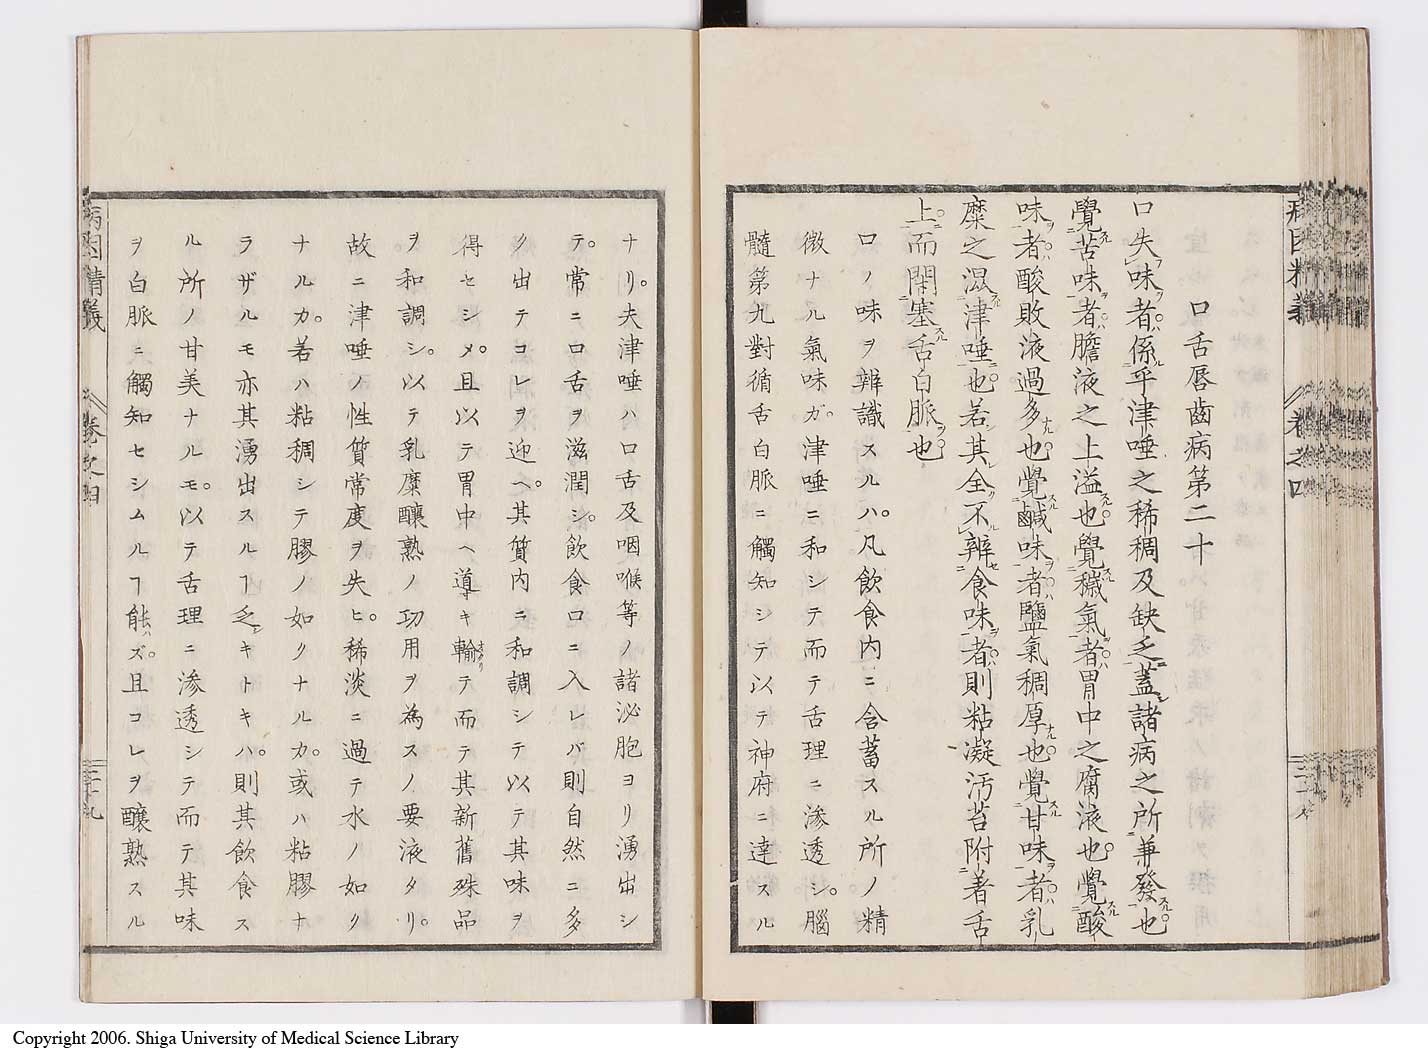 口舌唇齒病第二十
口失味者係乎津唾之稀稠及缺乏蓋諸病之所兼發也
覺苦味者膽液之上溢也覺穢氣者胃中之腐液也覺酸
味者酸敗液過多也覺鹹味者鹽氣稠厚也覺甘味者乳
糜之混津唾也若其全不辨食味者則粘凝汚苔附著舌
上而閉塞舌白脈也
口ノ味ヲ辨識スルハ。凡飲食内ニ含蓄スル所ノ精
微ナル氣味ガ。津唾ニ和シテ而テ舌理ニ滲透シ。腦
髓第九對循舌白脈ニ觸知シテ以テ神府ニ達スル
ナリ。夫津唾ハ口舌及咽喉等ノ諸泌胞ヨリ湧出シ
テ。常ニ口舌ヲ滋潤シ。飲食口ニ入レバ則自然ニ多
ク出テコレヲ迎ヘ。其質内ニ和調シテ以テ其味ヲ
得セシメ。且以テ胃中ヘ導キ輸テ而テ其新舊殊品
ヲ和調シ。以テ乳糜釀熟ノ功用ヲ為スノ要液タリ。
故ニ津唾ノ性質常度ヲ失ヒ。稀淡ニ過テ水ノ如ク
ナルカ。若ハ粘稠シテ膠ノ如クナルカ。或ハ粘膠ナ
ラザルモ亦其湧出スルヿ乏キトキハ。則其飲食ス
ル所ノ甘美ナルモ。以テ舌理ニ滲透シテ而テ其味
ヲ白脈ニ觸知セシムルヿ能ハズ。且コレヲ釀熟スル
病因精義
卷之四
二十九
Copyright 2006. Shiga University of Medical Science Library